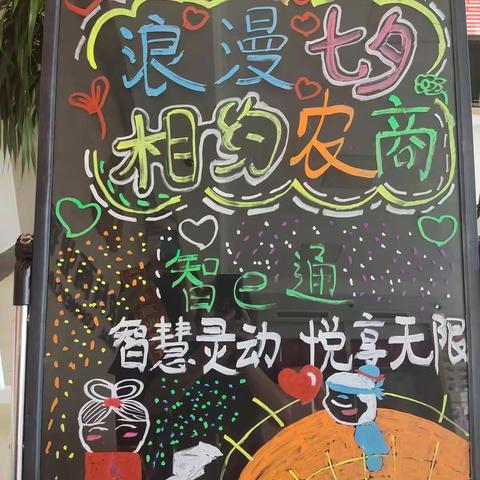 浪漫七夕
相约农商
智e通
智慧灵动 悦享无限